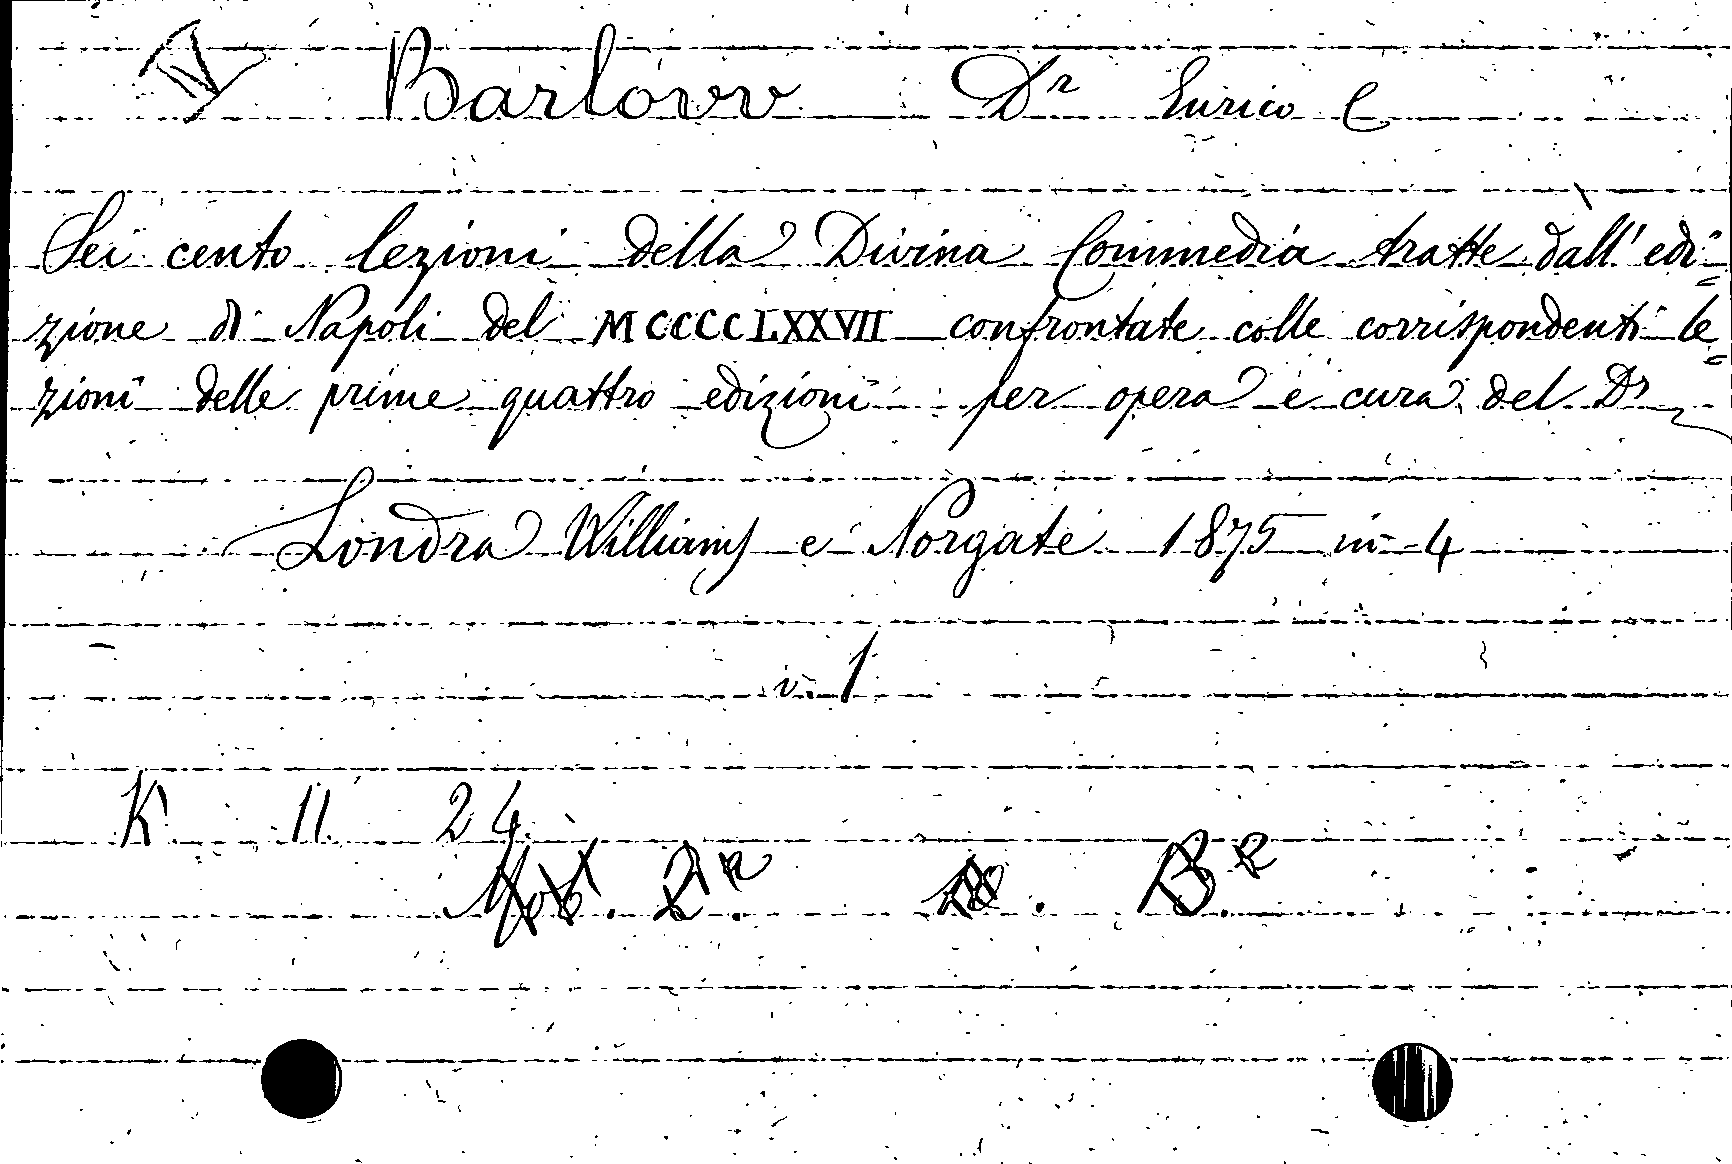 IV Barlow Dr Enrico C
Sei cento lezioni della Divina Commedia tratte dall' edi=
zione di Napoli del MCCCCLXXVII confrontate colle corrispondenti le=
zioni delle prime quattro edizioni per opera e cura del Dr
Londra Williams e Norgate 1875 in-4
v. 1
K 11 24